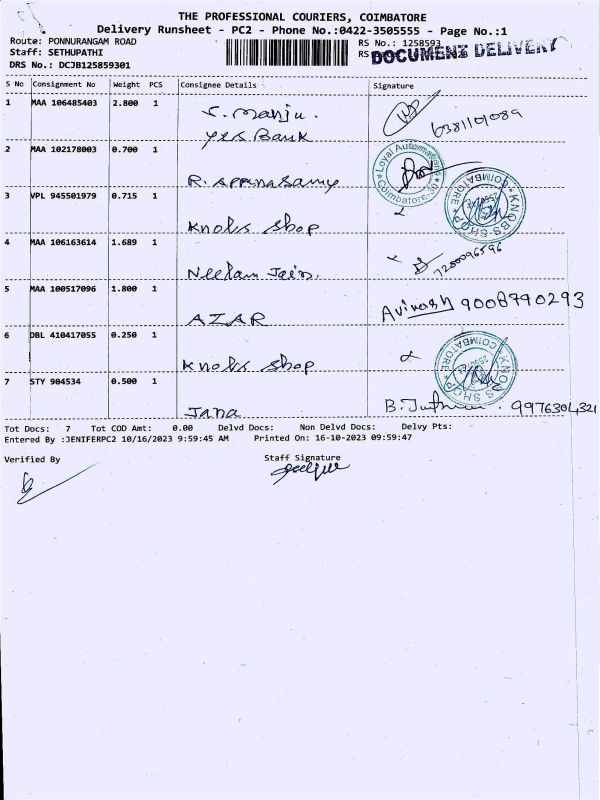 THE PROFESSIONAL COURIERS, COIMBATORE
Delivery Runsheet - PC2 - Phone No.:0422-3505555 - Page No.:1
Route: PONNURANGAM ROAD
RS No.: 1258593
Staff: SETHUPATHI
RS
DOCUMENT DELIVERY
DRS No.: DCJB125859301
S No Consignment No Weight PCS Consignee Details Signature
1 MAA 106485403 2.800 1 S. Manju. 6381101089
Yes Bank
2 MAA 102178003 0.700 1 R. Appunasamy
Loyal Automations Coimbatore-30
3 VPL 945501979 0.715 1 Knobs Shop
KNOBS-SHOP COIMBATORE
4 MAA 106163614 1.689 1 Neelam Jain. 7200096596
5 MAA 100517096 1.800 1 AZAR Avinash 9008790293
6 DBL 410417055 0.250 1 Knobs Shop
KNOBS-SHOP COIMBATORE
7 STY 904534 0.500 1 Jana B. 9976304321
Tot Docs: 7 Tot COD Amt: 0.00 Delvd Docs: Non Delvd Docs: Delvy Pts:
Entered By :JENIFERPC2 10/16/2023 9:59:45 AM Printed On: 16-10-2023 09:59:47
Verified By Staff Signature